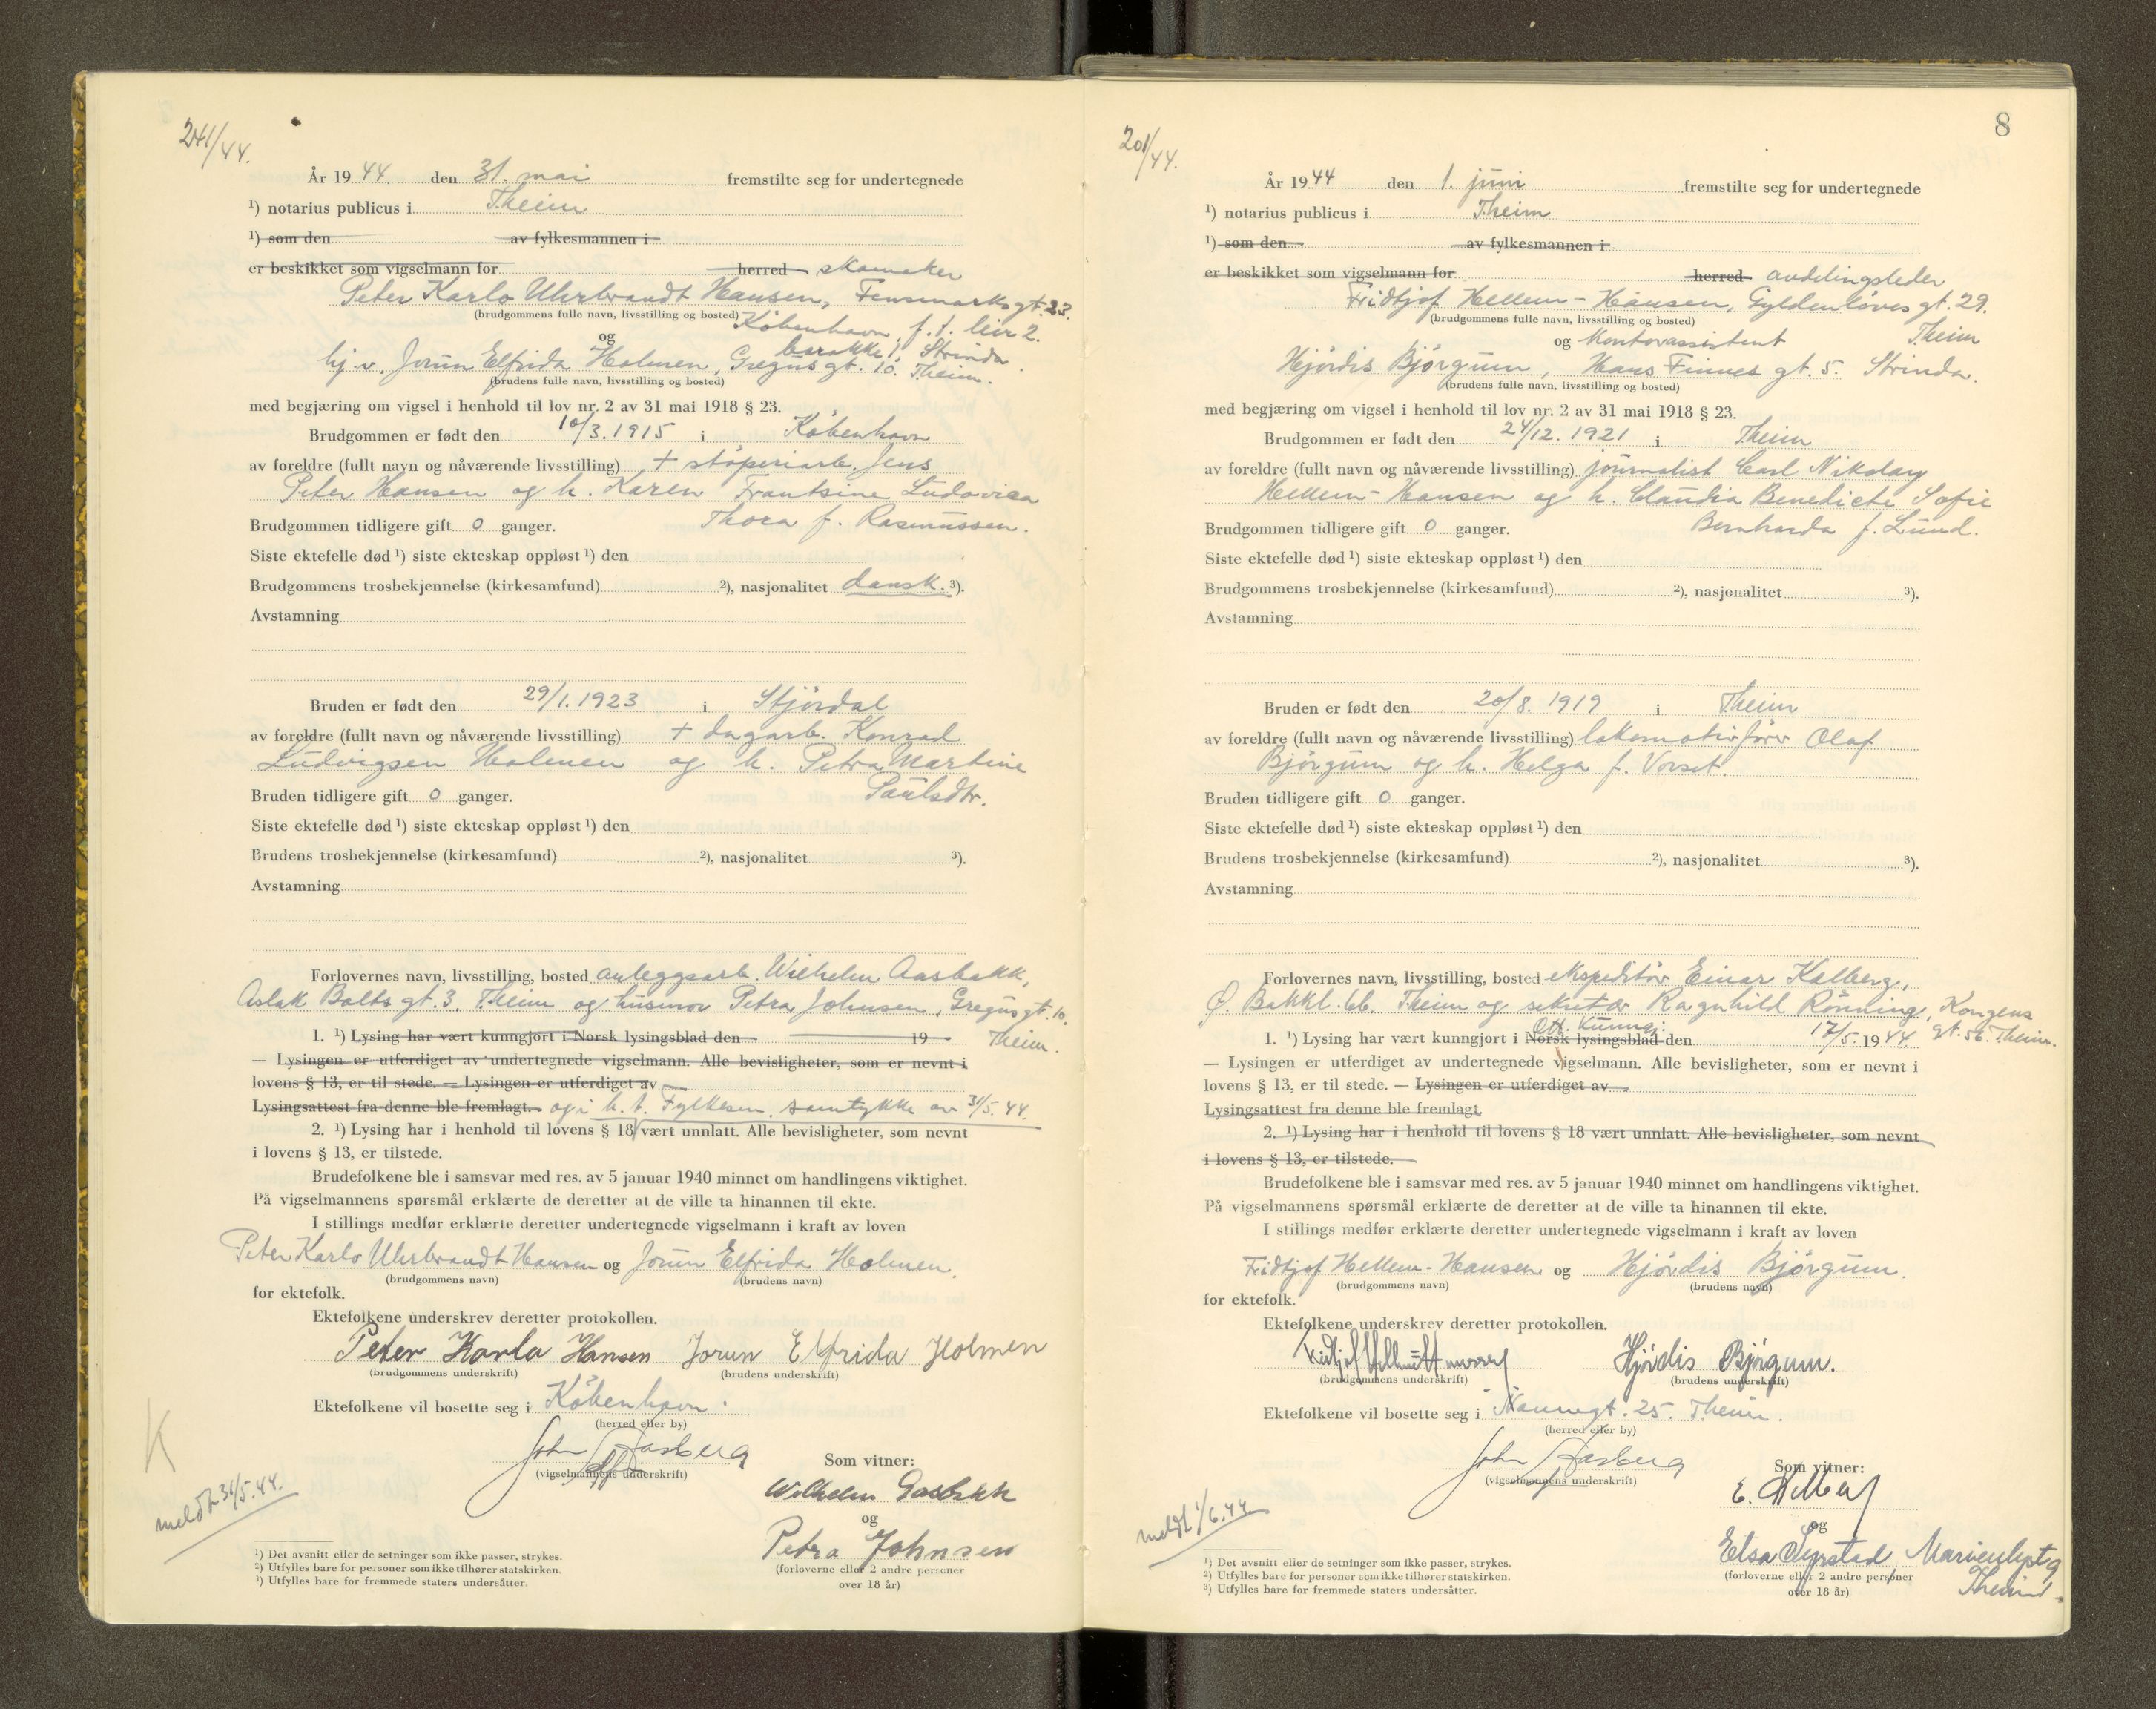 241/44.
År 1944. den 31. mai fremstilte seg for undertegnede
¹) notarius publicus i Theim
¹) som den av fylkesmannen i
er beskikket som vigselmann for herred skomaker
Peter Karlo Uhrbrandt Hansen, Fensmarksgt. 23.
(brudgommens fulle navn, livsstilling og bosted) København, f.t. leir 2.
og barakke 1, Strinda.
hj.v. Jorun Elfrida Holmen, Gregusgt. 10. Theim.
(brudens fulle navn, livsstilling og bosted)
med begjæring om vigsel i henhold til lov nr. 2 av 31 mai 1918 § 23.
Brudgommen er født den 10/3. 1915 i København
av foreldre (fullt navn og nåværende livsstilling) + støperiarb. Jens
Peter Hansen og h. Karen Frantsine Ludovica
Brudgommen tidligere gift 0 ganger. Thora f. Rasmussen.
Siste ektefelle død ¹) siste ekteskap oppløst ¹) den
Brudgommens trosbekjennelse (kirkesamfund) ²), nasjonalitet dansk. ³).
Avstamning
Bruden er født den 29/1. 1923 i Stjördal
av foreldre (fullt navn og nåværende livsstilling) + dagarb. Konrad
Ludvigsen Holmen og h. Petra Martine
Bruden tidligere gift 0 ganger. Paulsdtr.
Siste ektefelle død ¹) siste ekteskap oppløst ¹) den
Brudens trosbekjennelse (kirkesamfund) ²), nasjonalitet ³).
Avstamning
Forlovernes navn, livsstilling, bosted anleggsarb. Wilhelm Aasbakk,
Aslak Bolts gt. 3. Theim og husmor Petra Johnsen, Gregusgt. 10.
1. ¹) Lysing har vært kunngjort i Norsk lysingsblad den 19 Theim.
— Lysingen er utferdiget av undertegnede vigselmann. Alle bevisligheter, som er nevnt i
lovens § 13, er til stede. — Lysingen er utferdiget av
Lysingsattest fra denne ble fremlagt. og i h. t. Fylkesm. samtykke av 31/5. 44.
2. ¹) Lysing har i henhold til lovens § 18 vært unnlatt. Alle bevisligheter, som nevnt
i lovens § 13, er tilstede.
Brudefolkene ble i samsvar med res. av 5 januar 1940 minnet om handlingens viktighet.
På vigselmannens spørsmål erklærte de deretter at de ville ta hinannen til ekte.
I stillings medfør erklærte deretter undertegnede vigselmann i kraft av loven
Peter Karlo Uhrbrandt Hansen og Jorun Elfrida Holmen.
(brudgommens navn) (brudens navn)
for ektefolk.
Ektefolkene underskrev deretter protokollen.
Peter Karlo Hansen Jorun Elfrida Holmen
(brudgommens underskrift) (brudens underskrift)
Ektefolkene vil bosette seg i København.
(herred eller by)
John Aasberg
(vigselmannens underskrift)
Som vitner:
Wilhelm Aasbakk
og
Petra Johnsen
(forloverne eller 2 andre personer
over 18 år)
K
meldt 31/5. 44.
¹) Det avsnitt eller de setninger som ikke passer, strykes.
²) Utfylles bare for personer som ikke tilhører statskirken.
³) Utfylles bare for fremmede staters undersåtter.
8
201/44.
År 1944 den 1. juni fremstilte seg for undertegnede
¹) notarius publicus i Theim
¹) som den av fylkesmannen i
er beskikket som vigselmann for herred avdelingsleder
Fridtjof Hellem-Hansen, Gyldenløves gt. 29.
(brudgommens fulle navn, livsstilling og bosted)
og Kontorassistent Theim
Hjördis Björgum, Hans Finnes gt. 5. Strinda.
(brudens fulle navn, livsstilling og bosted)
med begjæring om vigsel i henhold til lov nr. 2 av 31 mai 1918 § 23.
Brudgommen er født den 24/12. 1921 i Theim
av foreldre (fullt navn og nåværende livsstilling) journalist Carl Nikolay
Hellem-Hansen og h. Claudia Benedicte Sofie
Brudgommen tidligere gift 0 ganger. Bernharda f. Lund.
Siste ektefelle død ¹) siste ekteskap oppløst ¹) den
Brudgommens trosbekjennelse (kirkesamfund) ²), nasjonalitet ³).
Avstamning
Bruden er født den 20/8. 1919 i Theim
av foreldre (fullt navn og nåværende livsstilling) lokomotivförer Olaf
Björgum og h. Helga f. Vorset.
Bruden tidligere gift 0 ganger.
Siste ektefelle død ¹) siste ekteskap oppløst ¹) den
Brudens trosbekjennelse (kirkesamfund) ²), nasjonalitet ³).
Avstamning
Forlovernes navn, livsstilling, bosted ekspeditör Einar Kalberg,
Ø. Bakkl. 66. Theim og Ragnhild Rönning, Kongens
1. ¹) Lysing har vært kunngjort i Norsk lysingsblad Off. Kunng. den 17/5. 1944. gt. 56. Theim.
— Lysingen er utferdiget av undertegnede vigselmann. Alle bevisligheter, som er nevnt i
lovens § 13, er til stede. — Lysingen er utferdiget av
Lysingsattest fra denne ble fremlagt.
2. ¹) Lysing har i henhold til lovens § 18 vært unnlatt. Alle bevisligheter, som nevnt
i lovens § 13, er tilstede.
Brudefolkene ble i samsvar med res. av 5 januar 1940 minnet om handlingens viktighet.
På vigselmannens spørsmål erklærte de deretter at de ville ta hinannen til ekte.
I stillings medfør erklærte deretter undertegnede vigselmann i kraft av loven
Fridtjof Hellem-Hansen og Hjördis Björgum.
(brudgommens navn) (brudens navn)
for ektefolk.
Ektefolkene underskrev deretter protokollen.
Fridtjof Hellem-Hansen Hjördis Björgum.
(brudgommens underskrift) (brudens underskrift)
Ektefolkene vil bosette seg i Nannegt. 25. Theim.
(herred eller by)
John Aasberg
(vigselmannens underskrift)
Som vitner:
E.
og
Elsa Syrstad Marienlyst 9
(forloverne eller 2 andre personer Theim.
over 18 år)
meldt 1/6. 44.
¹) Det avsnitt eller de setninger som ikke passer, strykes.
²) Utfylles bare for personer som ikke tilhører statskirken.
³) Utfylles bare for fremmede staters undersåtter.